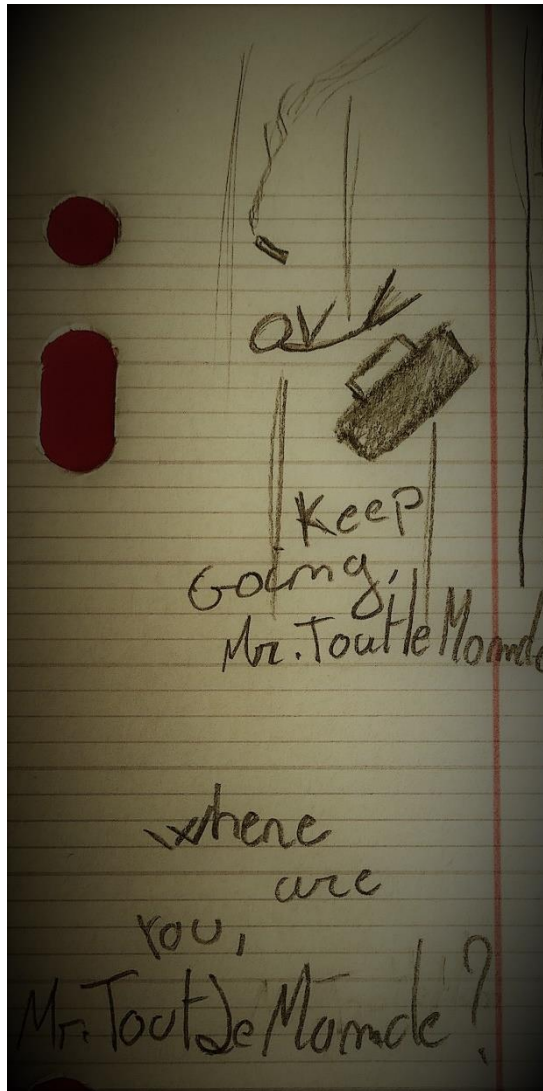 Keep
Going,
Mr. ToutleMonde
Where
are
You,
Mr. ToutLeMonde?